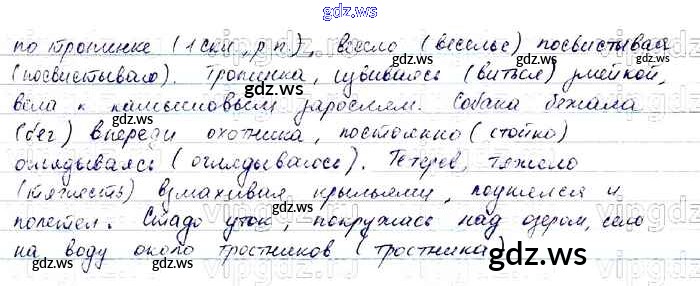 gdz.ws
по тропинке (1 скл., р.п.), весело (веселье) посвистывая
(посвистываю). Тропинка, извиваясь (виться) змейкой,
вела к камышовым зарослям. Собака бежала
(бег) впереди охотника, постоянно (стойко)
оглядываясь (оглядываюсь). Тетерев, тяжело
(тяжесть) взмахивая крыльями, поднялся и
полетел. Стадо уток, покружась над озером, село
на воду около тростников (тростника)
gdz.ws